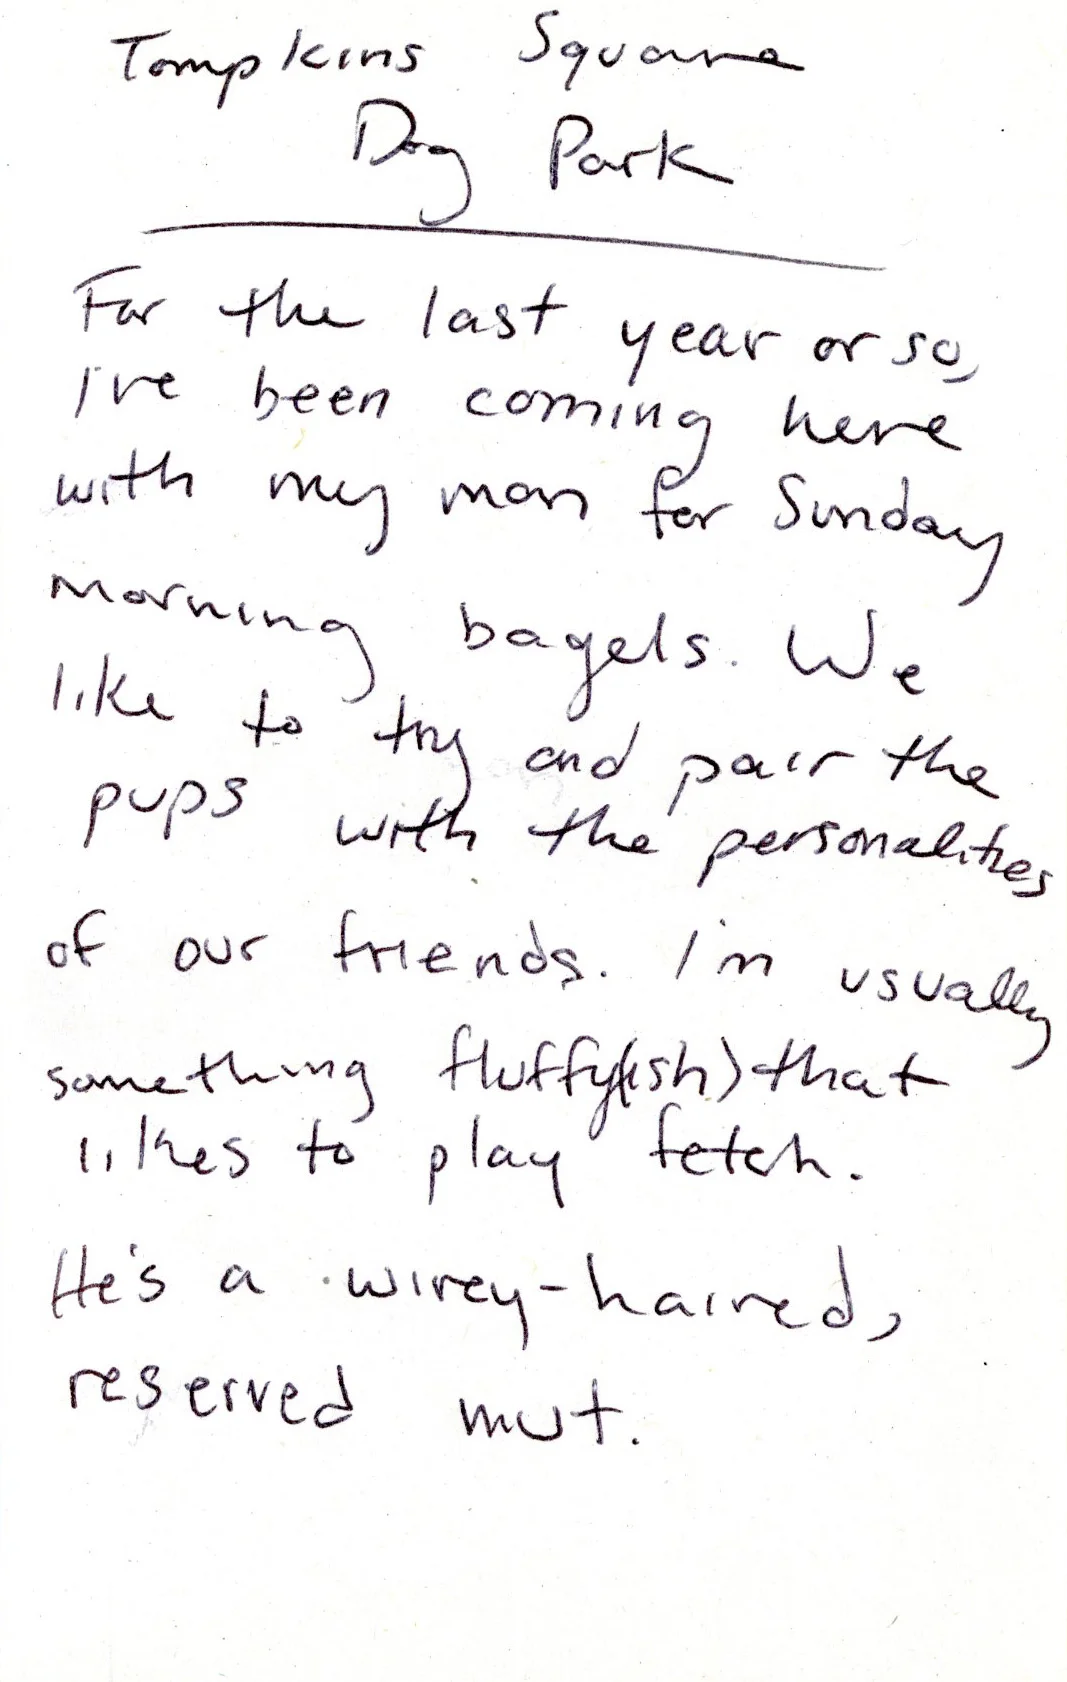 Tompkins Square
Dog Park
For the last year or so,
I've been coming here
with my man for Sunday
morning bagels. We
like to try and pair the
pups with the personalities
of our friends. I'm usually
something fluffy(ish) that
likes to play fetch.
He's a wirey-haired,
reserved mut.